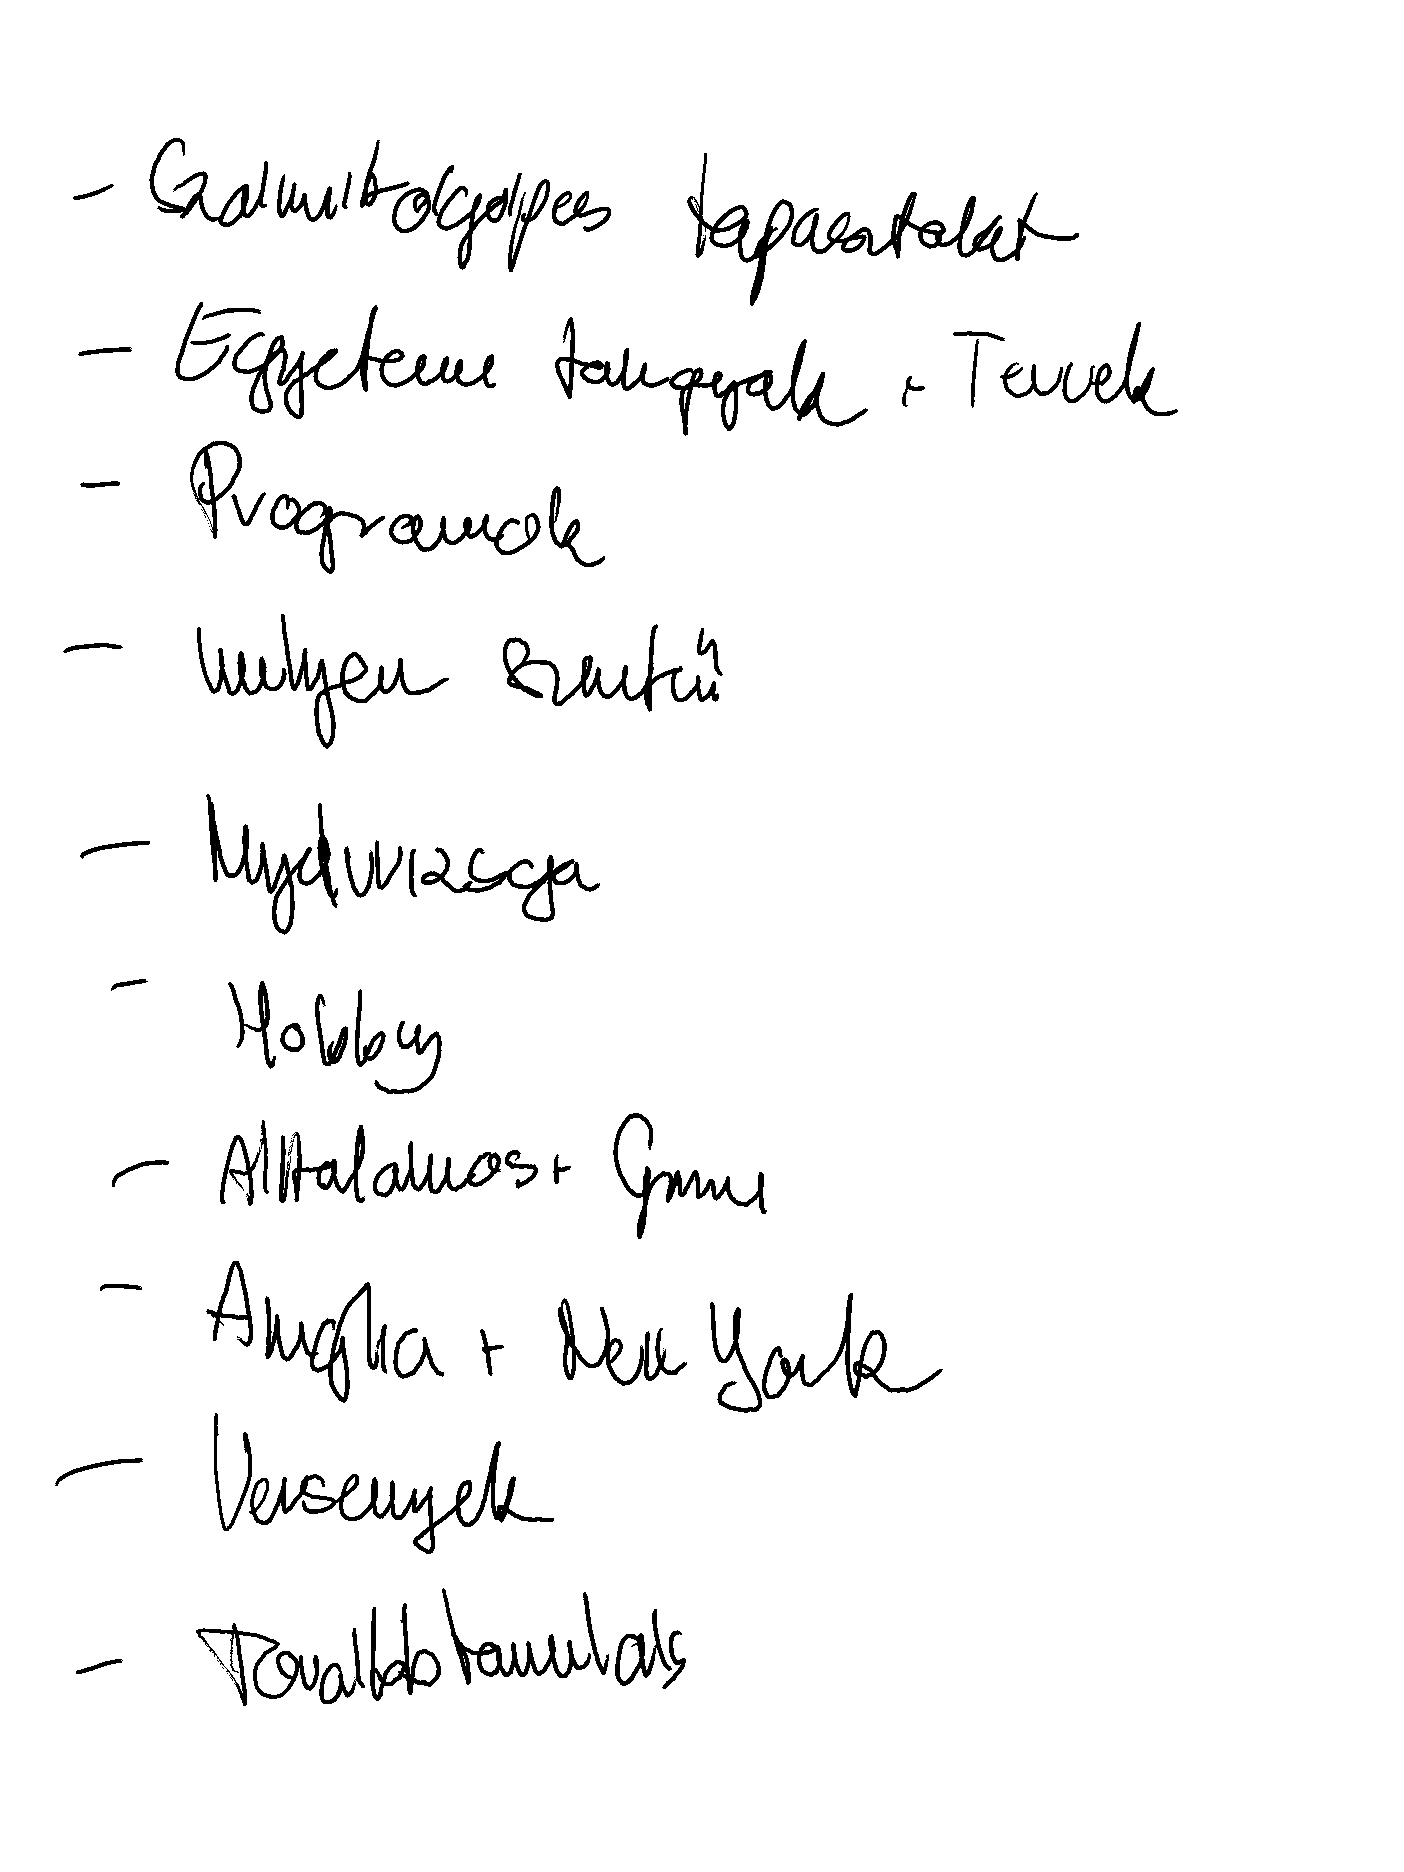 - Számítógépes tapasztalat
- Egyetemi tárgyak + Tervek
- Programok
- milyen szintű
- Nyelvvizsga
- Hobby
- Általános + Gimi
- Anglia + New York
- Versenyek
- Továbbtanulás